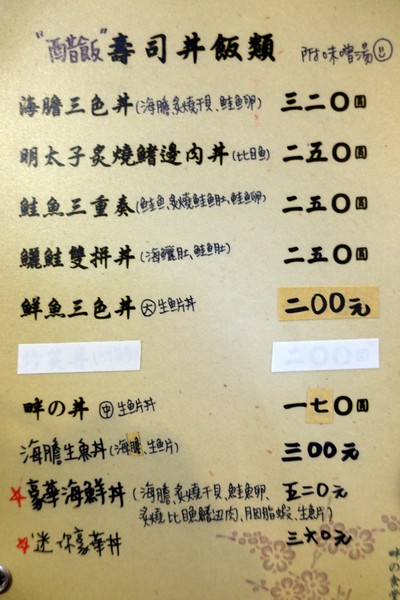 "醋飯"壽司丼飯類 附味噌湯
海膽三色丼(海膽、炙燒干貝、鮭魚卵) 三二〇圓
明太子炙燒鰭邊肉丼(比目魚) 二五〇圓
鮭魚三重奏(鮭魚、炙燒鮭魚肚、鮭魚卵) 二五〇圓
鱺鮭雙拼丼(海鱺肚、鮭魚肚) 二五〇圓
鮮魚三色丼 大 生魚片丼 二〇〇元
畔の丼 中 生魚片丼 一七〇圓
海膽生魚丼(海膽、生魚片) 三〇〇元
☆豪華海鮮丼(海膽、炙燒干貝、鮭魚卵、 五二〇元
炙燒比目魚鰭边肉、胭脂蝦、生魚片)
☆迷你豪華丼 三六〇元